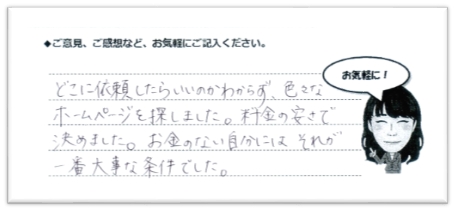 ◆ご意見、ご感想など、お気軽にご記入ください。
お気軽に！
どこに依頼したらいいのかわからず、色々な
ホームページを探しました。料金の安さで
決めました。お金のない自分には それが
一番大事な条件でした。